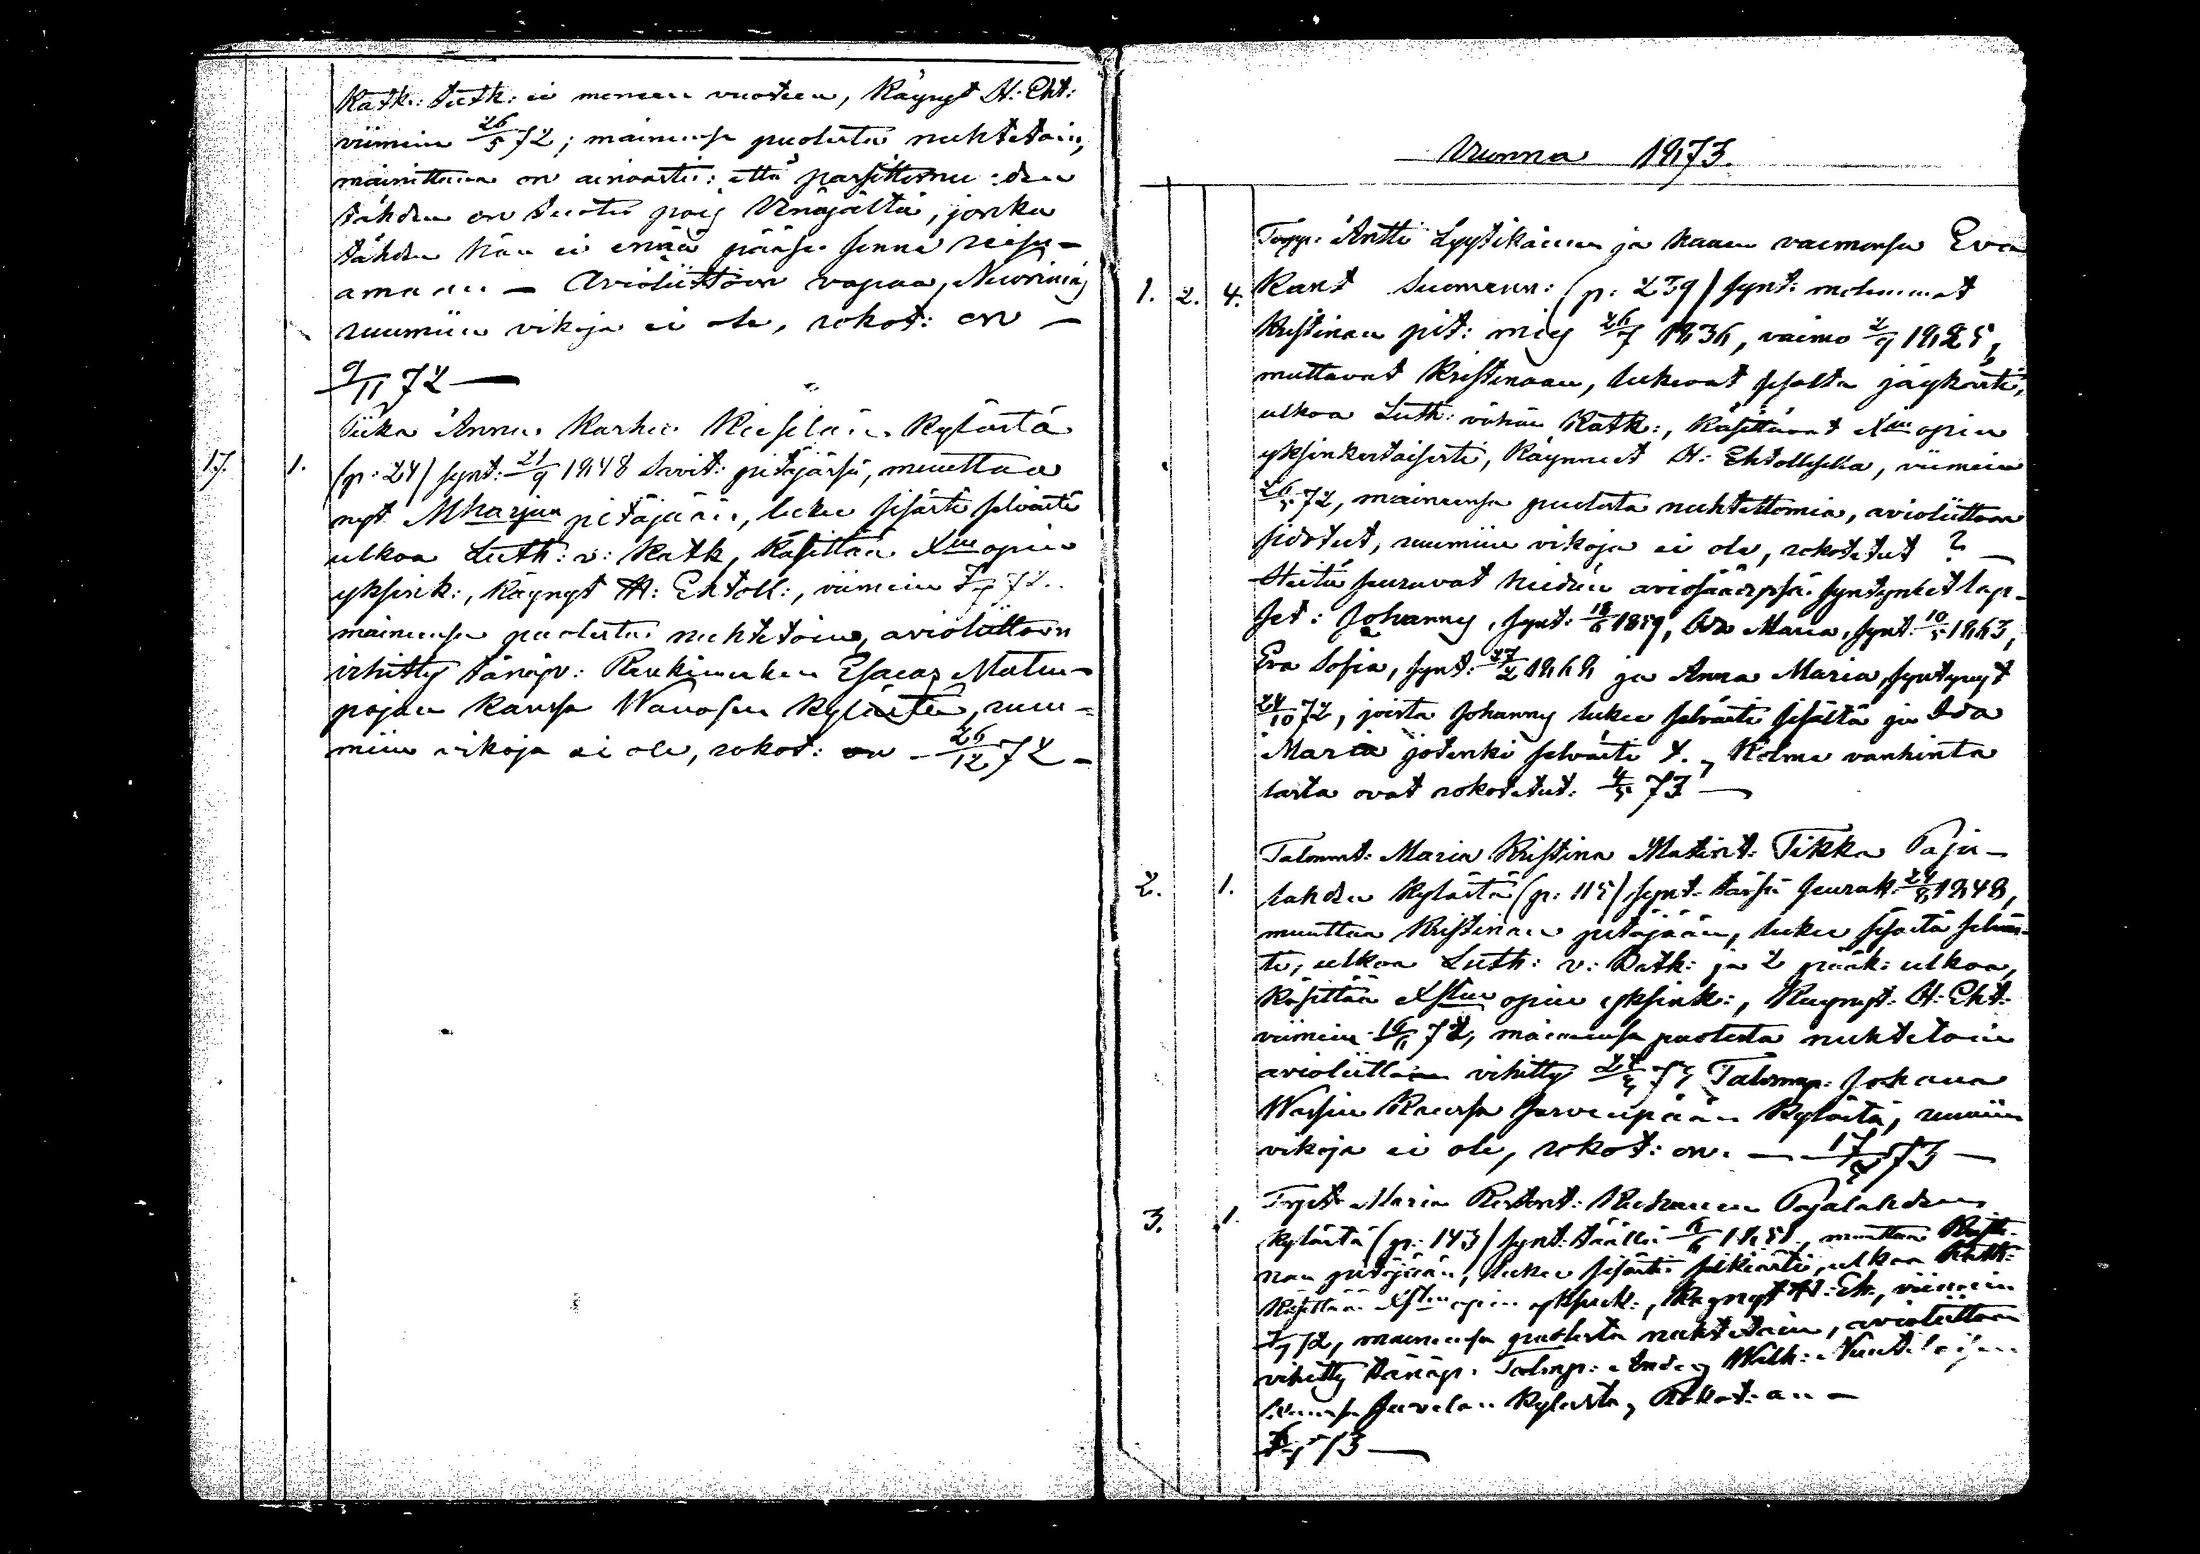 Katk: Tutk: ei menen vuoteen, Käynyt H: Eht:
viimein 26/5 72; maineensa puolesta nuhtetoin,
mainittava on ainoasti: että passittomu:den
tähden on tuotu poig Venäjältä, jonka
tähden hän ei enää pääse senne reisu-
amaan — Avioliittoon vapaa, Nuorining
ruumiin vikoja ei ole, rokot: on —
9/11 72 —
Piika Anna Karhu kylästä
17. 1. (p: 24) synt: 21/9 1848 Savit: pitäjässä, muuttaa
nyt Mharjun pitäjään, lukee sisältä selvästi
ulkoa Luth: v: Katk, Käsittää Xin opin
yksink:, Käynyt H: Ehtoll:, viimein 72.
maineensa puolesta nuhtetoin, avioliittoon
vihitty tänäpv: Esaias Matin-
pojan kanssa kylästä, ruu-
miin vikoja ei ole, rokot: on — 26/12 72 —
Vuonna 1873.
Antti Lyytikäinen ja hänen vaimonsa Eva
1. 2. 4. Suomenn: (p: 239) synt: molemmat
Kristinan pit: mies 26/7 1836, vaimo 2/9 1825,
muttavat Kristinaan, lukevat sisältä jäykästi,
ulkoa Luth: vähän Katk:, Käsittävät Xin opin
yksinkertaisesti, Käynneet H: Ehtollisella, viimein
26/5 72, maineensa puolesta nuhtettomia, avioliittoon
sidotut, ruumiin vikoja ei ole, rokotetut ? —
Heitä seuravat heidän aviosäädyssä syntyneet lap-
set: Johannes, synt: 18/6 1859, Ida Maria, synt: 10/5 1863,
Eva Sofia, synt: 27/2 1868 ja Anna Maria, syntynyt
24/10 72, joista Johannes lukee selvästi sisältä ja Ida
Maria jotenki selvästi. Kolme vanhinta
lasta ovat rokotetut: 4/5 73 —
Talonnt: Maria Kristina Matint: Tikka Paju-
2. 1. lahden kylästä (p: 115) synt: tässä seurak: 24/8 1848,
muuttaa Kristinan pitäjään, lukee sisältä selväs-
ti, ulkoa Luth: v: Katk: ja 2 pääk: ulkoa,
Käsittää Xstin opin yksink:, Käynyt: H: Eht:
viimein 72, maineensa puolesta nuhtetoin
avioliittoon vihitty 73 Talonp: Johana
kanssa kylästä, ruumiin
vikoja ei ole, rokot: on. — 17/5 73 —
Maria Pajulahden
3. 1. kylästä (p: 143) synt: täällä muuttaa Kristi-
nan pitäjään, lukee sisältä selkiästi, ulkoa Katk:
Käsittää Xstin opin yksink:, Käynyt H: Eh., viimein
72, maineensa puolesta nuhtetoin, avioliittoon
vihitty tänäp: Talonp:
kanssa kylästä, Rokot: on —
73 —